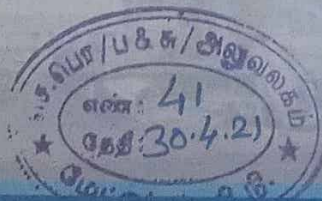 ச.பொ/ப௧சு/அலுவலகம்
எண்: 41
தேதி: 30.4.21